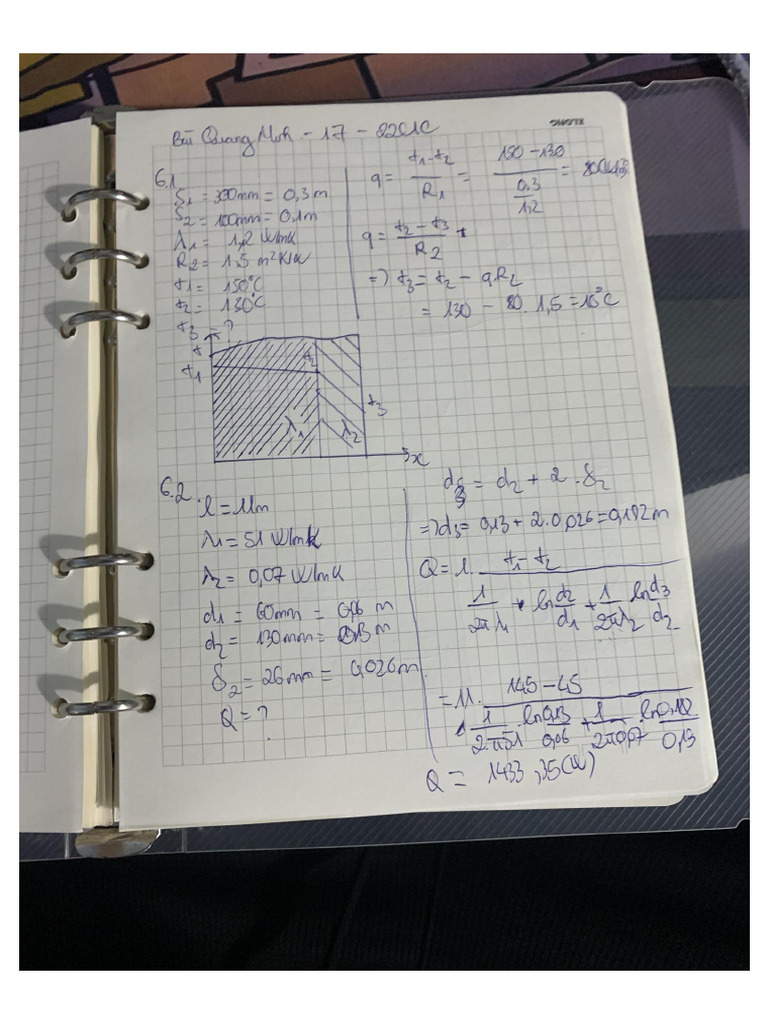 Bùi Quang Minh - 17 - 22C1C
KLONG
6.1
δ1 = 300mm = 0,3m
δ2 = 100mm = 0,1m
λ1 = 1,2 W/mK
R2 = 1,5 m²K/W
t1 = 150°C
t2 = 130°C
t3 = ?
q = (t1-t2)/R1 = (150-130)/(0,3/1,2) = 80
q = (t2-t3)/R2
=> t3 = t2 - qR2
= 130 - 80. 1,5 = 10°C
t
t1
t2
t3
λ1
λ2
x
6.2.
l = 11m
λ1 = 51 W/mK
λ2 = 0,07 W/mK
d1 = 60mm = 0,06 m
d2 = 130mm = 0,13 m
δ2 = 26mm = 0,026m
Q = ?
d3 = d2 + 2.δ2
=> d3 = 0,13 + 2.0,026 = 0,182 m
Q = l. (t1-t2)/(1/(2πλ1) . ln d2/d1 + 1/(2πλ2) ln d3/d2)
= 11. (145-45)/(1/(2.π.51) . ln 0,13/0,06 + 1/(2π0,07) . ln 0,182/0,13)
Q = 1433,35(W)